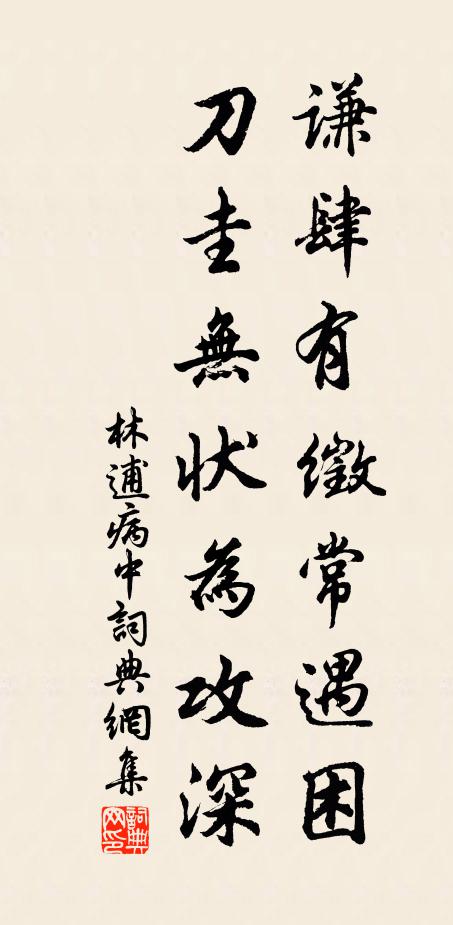 謙肆有徵常遇困
刀圭無狀為攻深
林逋病中詞典網集
詞典网印